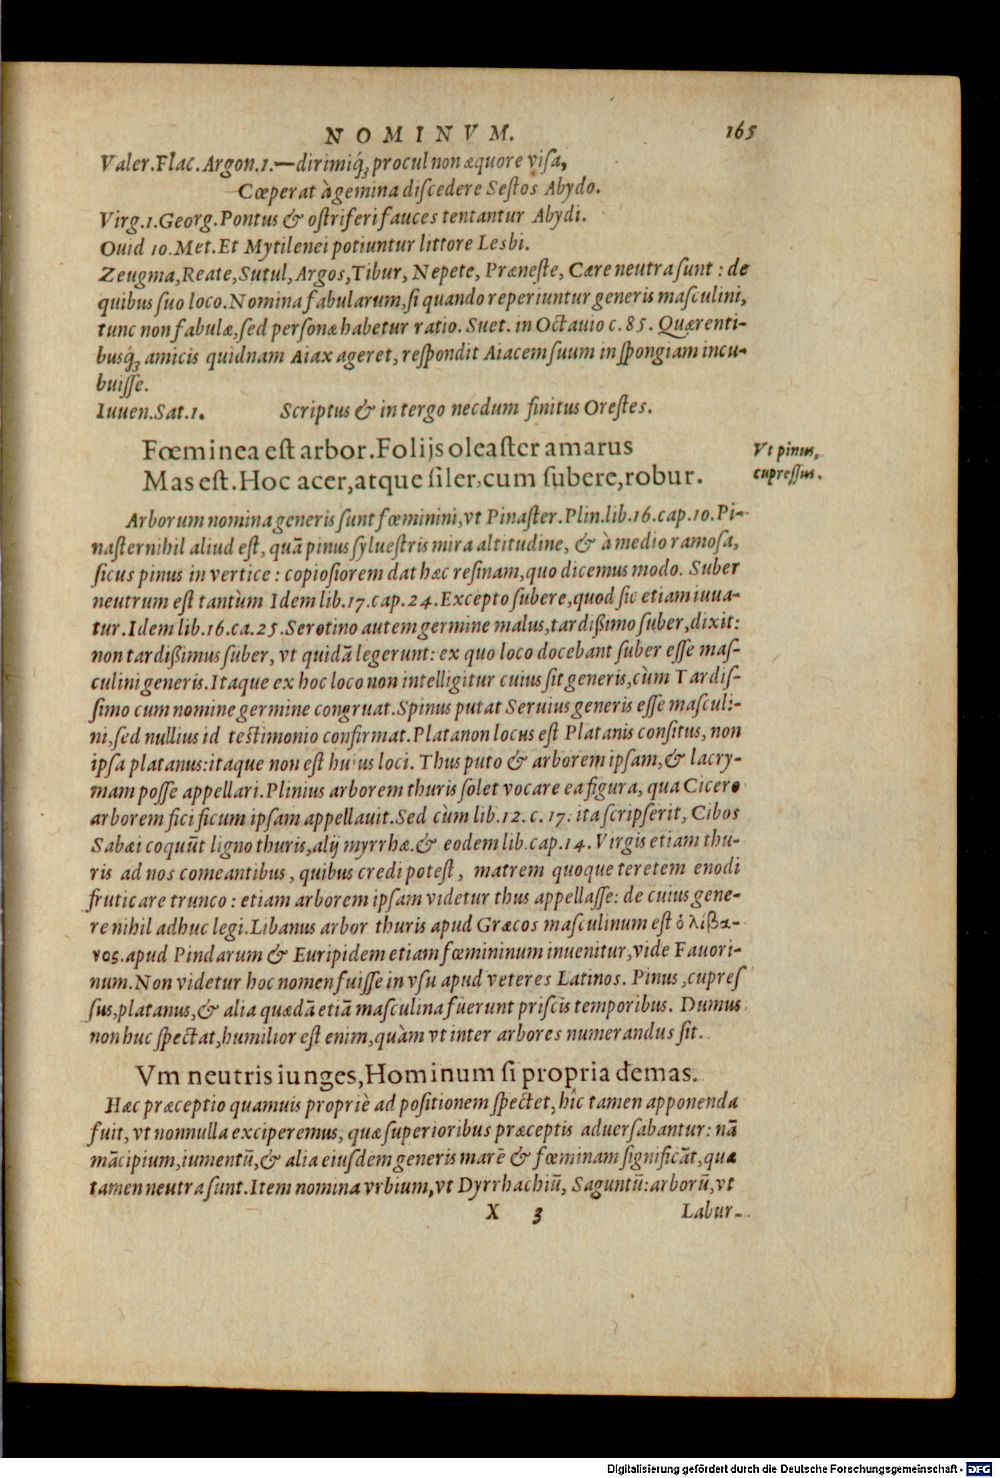 NOMINVM. 165
Valer.Flac.Argon.1.—dirimiq́; procul non æquore visa,
Cœperat à gemina discedere Sestos Abydo.
Virg.1.Georg.Pontus & ostriferi fauces tentantur Abydi.
Ouid 10.Met.Et Mytilenei potiuntur littore Lesbi.
Zeugma,Reate,Sutul,Argos,Tibur, Nepete, Præneste, Cære neutra sunt : de
quibus suo loco.Nomina fabularum,si quando reperiuntur generis masculini,
tunc non fabulæ,sed personæ habetur ratio. Suet. in Octauio c. 85. Quærenti-
busq́; amicis quidnam Aiax ageret, respondit Aiacem suum in spongiam incu-
buisse.
Iuuen.Sat.1. Scriptus & in tergo necdum finitus Orestes.
Fœminea est arbor.Folijs oleaster amarus
Mas est.Hoc acer,atque siler,cum subere,robur.
Vt pinus,
cupressus.
Arborum nomina generis sunt fœminini,vt Pinaster.Plin.lib.16.cap.10.Pi-
naster nihil aliud est, quã pinus syluestris mira altitudine, & à medio ramosa,
sicus pinus in vertice : copiosiorem dat hæc resinam,quo dicemus modo. Suber
neutrum est tantùm Idem lib.17.cap.24.Excepto subere,quod sic etiam iuua-
tur.Idem lib.16.ca.25.Serotino autem germine malus,tardißimo suber,dixit:
non tardißimus suber, vt quidã legerunt: ex quo loco docebant suber esse mas-
culini generis.Itaque ex hoc loco non intelligitur cuius sit generis,cùm Tardis-
simo cum nomine germine congruat.Spinus putat Seruius generis esse masculi-
ni,sed nullius id testimonio confirmat.Platanon locus est Platanis consitus, non
ipsa platanus:itaque non est huius loci. Thus puto & arborem ipsam,& lacry-
mam posse appellari.Plinius arborem thuris solet vocare ea figura, qua Cicero
arborem fici ficum ipsam appellauit.Sed cùm lib.12.c.17. ita scripserit, Cibos
Sabæi coquũt ligno thuris,alij myrrhæ.& eodem lib.cap.14. Virgis etiam thu-
ris ad nos comeantibus, quibus credi potest, matrem quoque teretem enodi
fruticare trunco : etiam arborem ipsam videtur thus appellasse: de cuius gene-
re nihil adhuc legi.Libanus arbor thuris apud Græcos masculinum est ὁ λίβα-
νος.apud Pindarum & Euripidem etiam fœmininum inuenitur,vide Fauori-
num.Non videtur hoc nomen fuisse in vsu apud veteres Latinos. Pinus,cupres
sus,platanus,& alia quædã etiã masculina fuerunt priscis temporibus. Dumus
non huc spectat,humilior est enim,quàm vt inter arbores numerandus sit.
Vm neutris iunges,Hominum si propria demas.
Hæc præceptio quamuis propriè ad positionem spectet,hîc tamen apponenda
fuit, vt nonnulla exciperemus, quæ superioribus præceptis aduersabantur: nã
mãcipium,iumentũ,& alia eiusdem generis marẽ & fœminam significãt,quæ
tamen neutra sunt.Item nomina vrbium,vt Dyrrhachiũ, Saguntũ:arborũ,vt
X 3 Labur-
Digitalisierung gefördert durch die Deutsche Forschungsgemeinschaft - DFG